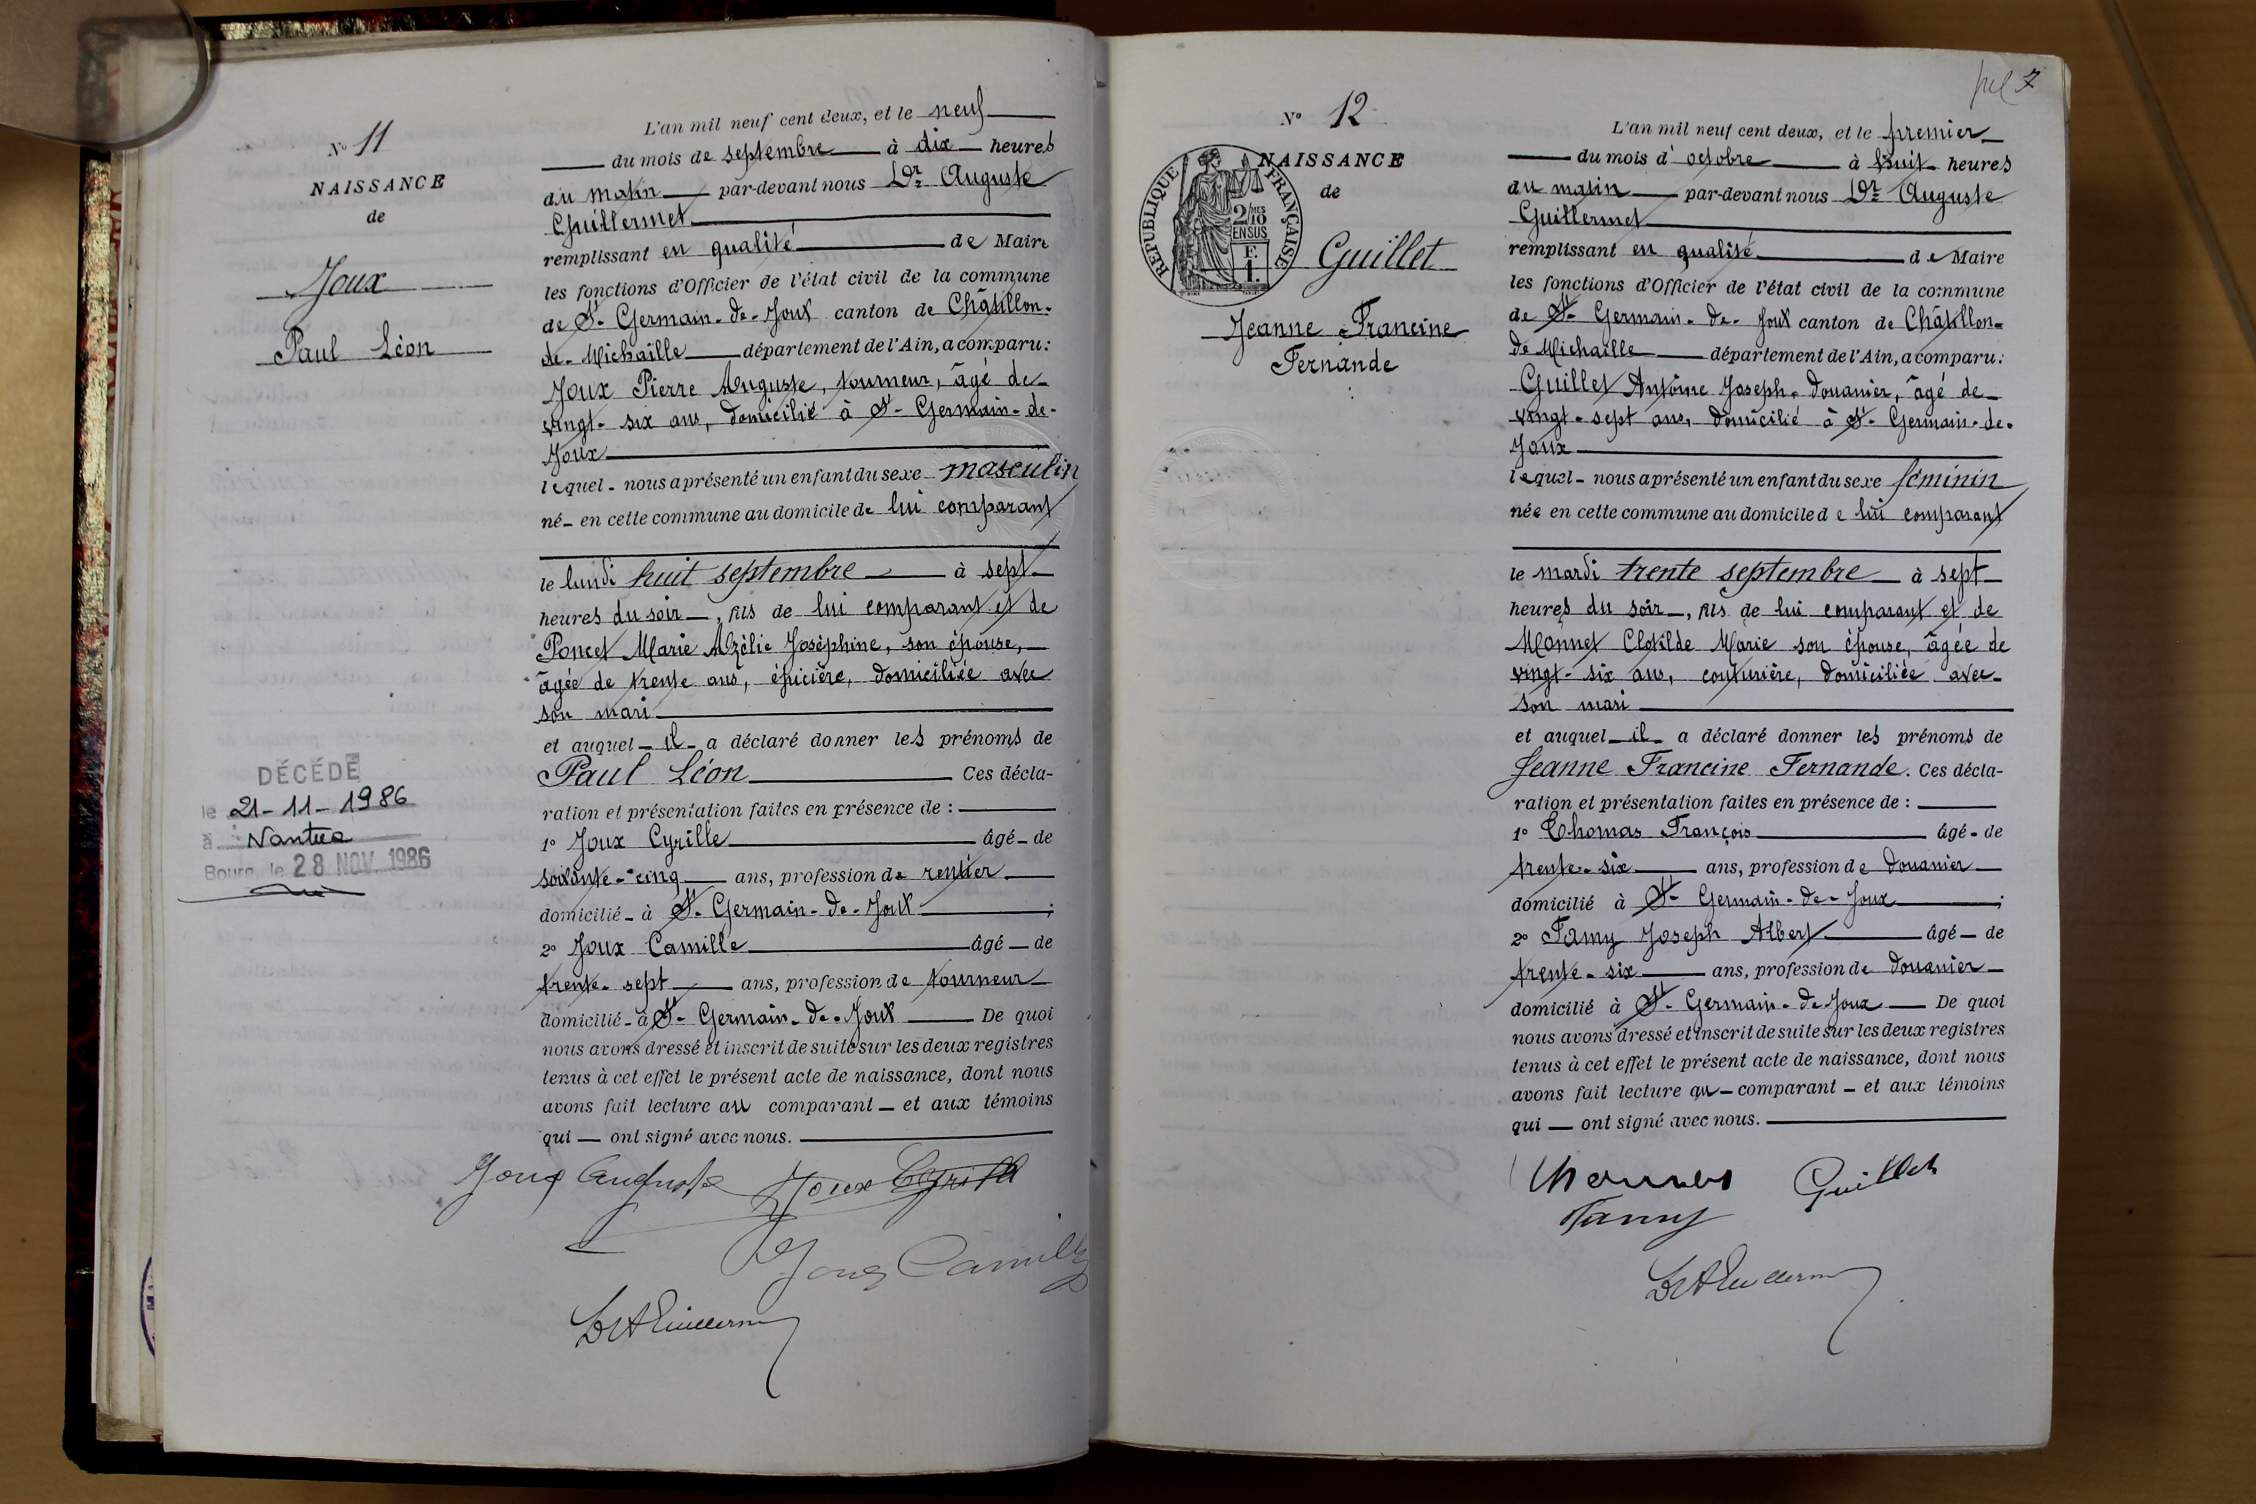 N° 11
NAISSANCE
de
Joux
Paul Léon
DÉCÉDÉ
le 21-11-1986
à Nantua
Bourg, le 28 NOV. 1986
L'an mil neuf cent deux, et le neuf
du mois de septembre à dix heures
du matin par-devant nous Dr Auguste
Guillermet
remplissant en qualité de Maire
les fonctions d'Officier de l'état civil de la commune
de St-Germain-de-Joux canton de Châtillon-
de-Michaille département de l'Ain, a comparu:
Joux Pierre Auguste, tourneur, âgé de
vingt-six ans, domicilié à St-Germain-de-
Joux
lequel nous a présenté un enfant du sexe masculin
né en cette commune au domicile de lui comparant
le lundi huit septembre à sept
heures du soir, fils de lui comparant et de
Poncet Marie Alzélie Joséphine, son épouse,
âgée de trente ans, épicière, domiciliée avec
son mari
et auquel il a déclaré donner les prénoms de
Paul Léon Ces décla-
ration et présentation faites en présence de :
1° Joux Cyrille âgé de
soixante-cinq ans, profession de rentier
domicilié à St-Germain-de-Joux ;
2° Joux Camille âgé de
trente-sept ans, profession de tourneur
domicilié à St-Germain-de-Joux De quoi
nous avons dressé et inscrit de suite sur les deux registres
tenus à cet effet le présent acte de naissance, dont nous
avons fait lecture au comparant et aux témoins
qui ont signé avec nous.
Joux Auguste Joux Cyrille
Joux Camille
Dr A Guillermet
pel 7
N° 12
NAISSANCE
de
RÉPUBLIQUE FRANÇAISE
2/10MES
EN SUS
F.
1.
Guillet
Jeanne Francine
Fernande
L'an mil neuf cent deux, et le premier
du mois d'octobre à huit heures
du matin par-devant nous Dr Auguste
Guillermet
remplissant en qualité de Maire
les fonctions d'Officier de l'état civil de la commune
de St-Germain-de-Joux canton de Châtillon-
de Michaille département de l'Ain, a comparu:
Guillet Antoine Joseph, douanier, âgé de
vingt-sept ans, domicilié à St-Germain-de-
Joux
lequel nous a présenté un enfant du sexe féminin
née en cette commune au domicile de lui comparant
le mardi trente septembre à sept
heures du soir, fils de lui comparant et de
Monnet Clotilde Marie son épouse, âgée de
vingt-six ans, couturière, domiciliée avec
son mari
et auquel il a déclaré donner les prénoms de
Jeanne Francine Fernande. Ces décla-
ration et présentation faites en présence de :
1° Thomas François âgé de
trente-six ans, profession de douanier
domicilié à St-Germain-de-Joux ;
2° Famy Joseph Albert âgé de
trente-six ans, profession de douanier
domicilié à St-Germain-de-Joux De quoi
nous avons dressé et inscrit de suite sur les deux registres
tenus à cet effet le présent acte de naissance, dont nous
avons fait lecture au comparant et aux témoins
qui ont signé avec nous.
Thomas Guillet
Famy
Dr A Guillermet